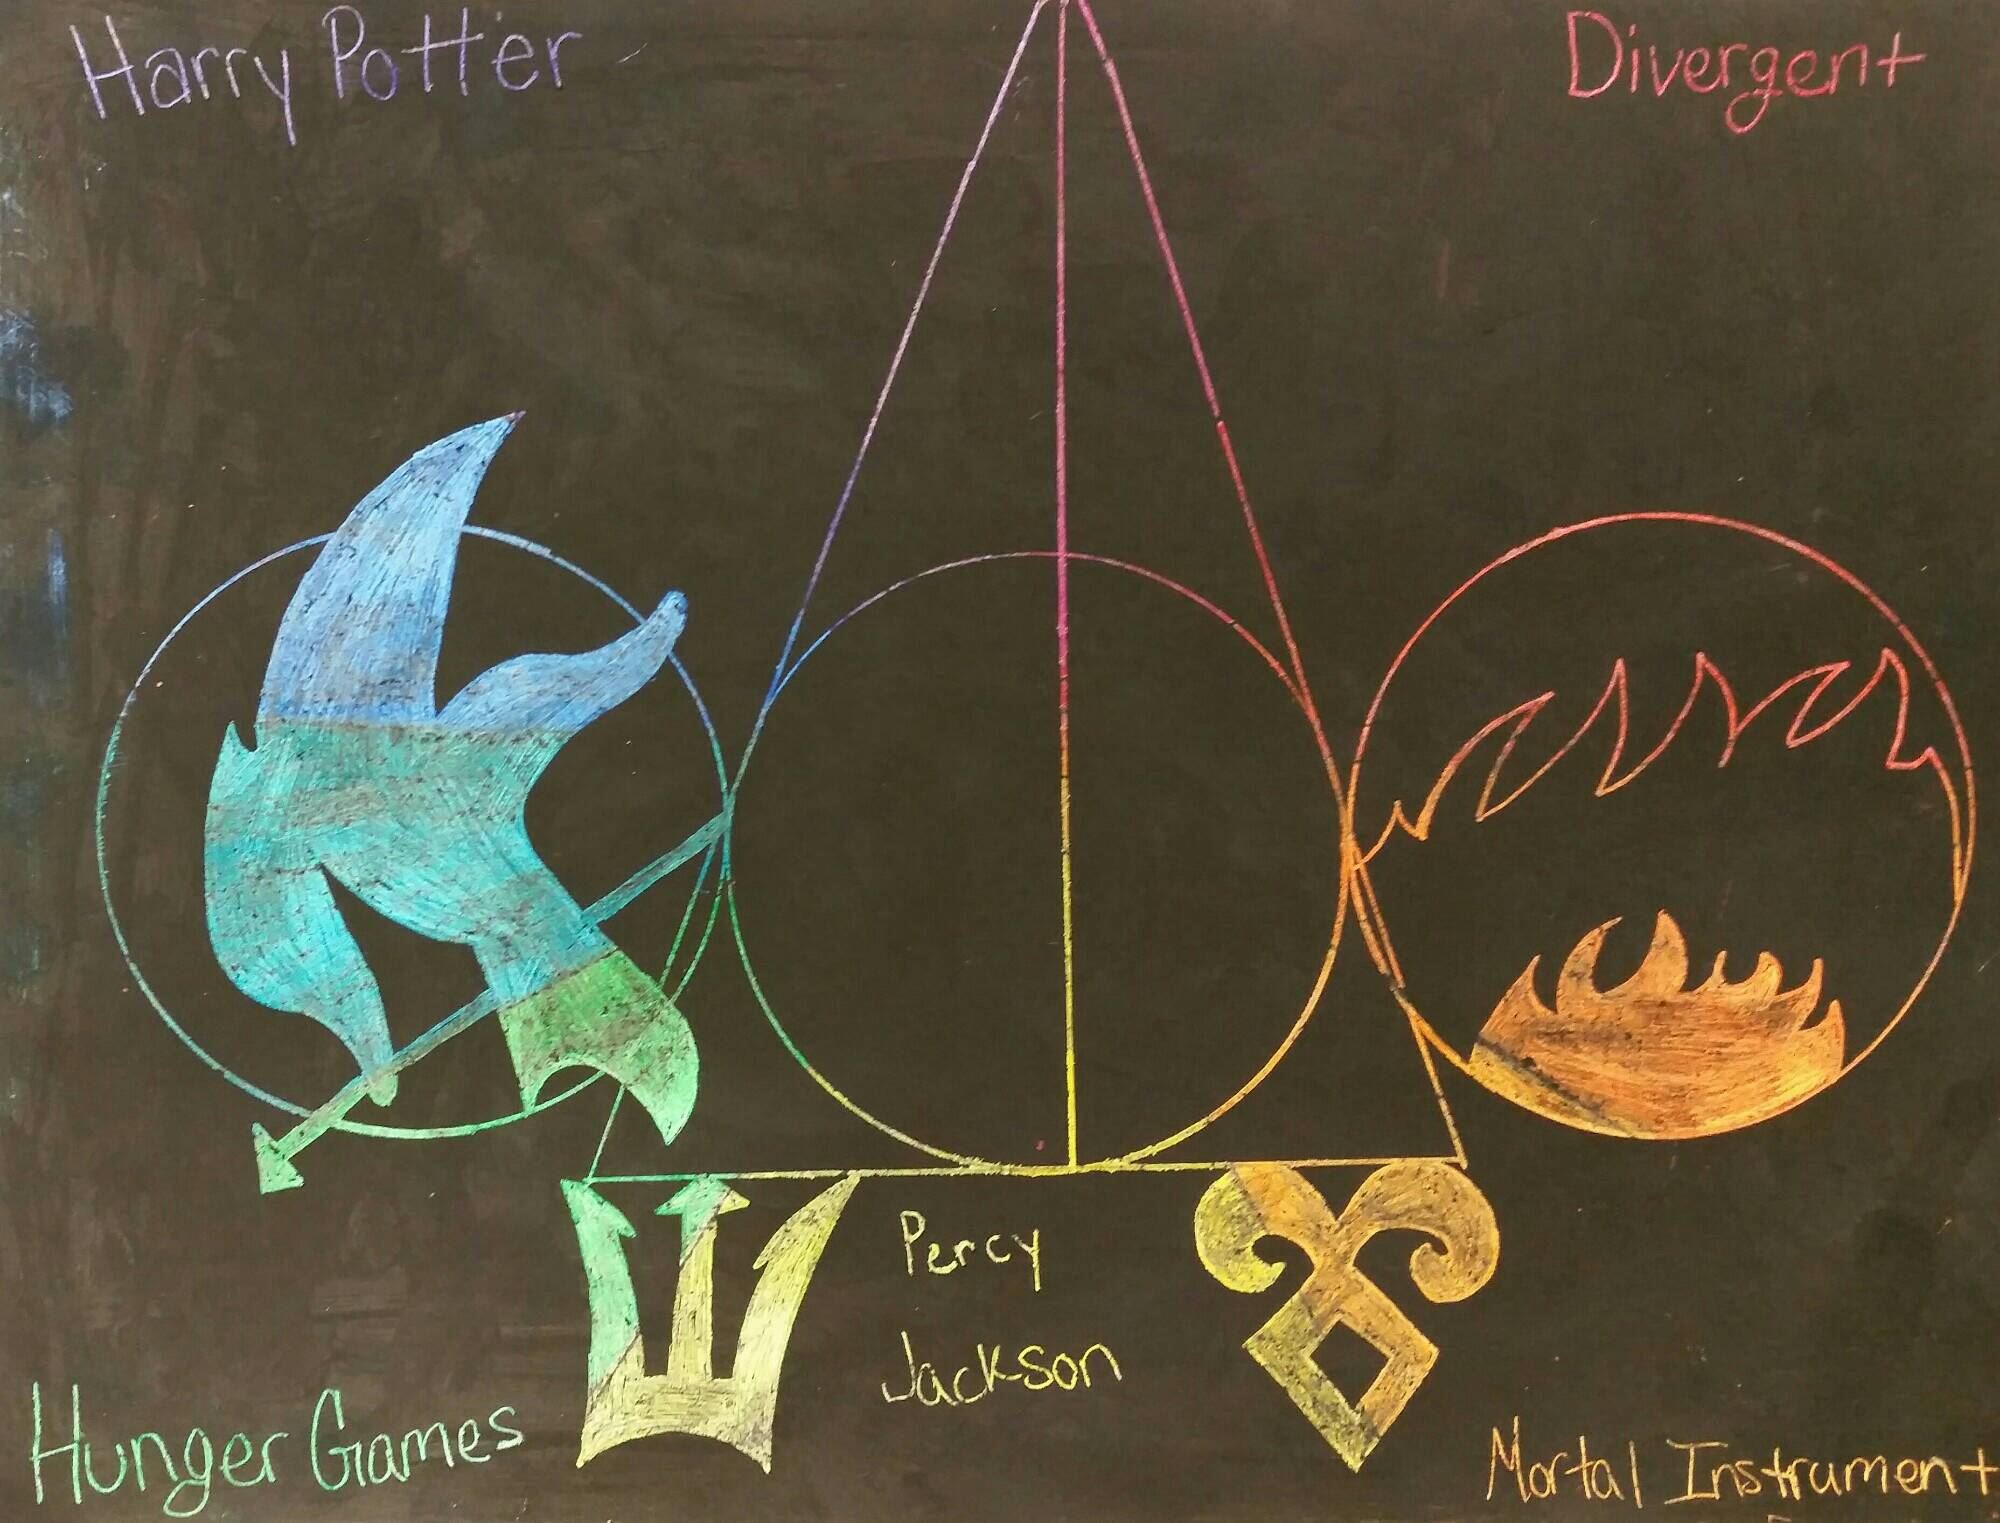 Harry Potter
Divergent
Percy
Jackson
Hunger Games
Mortal Instrument